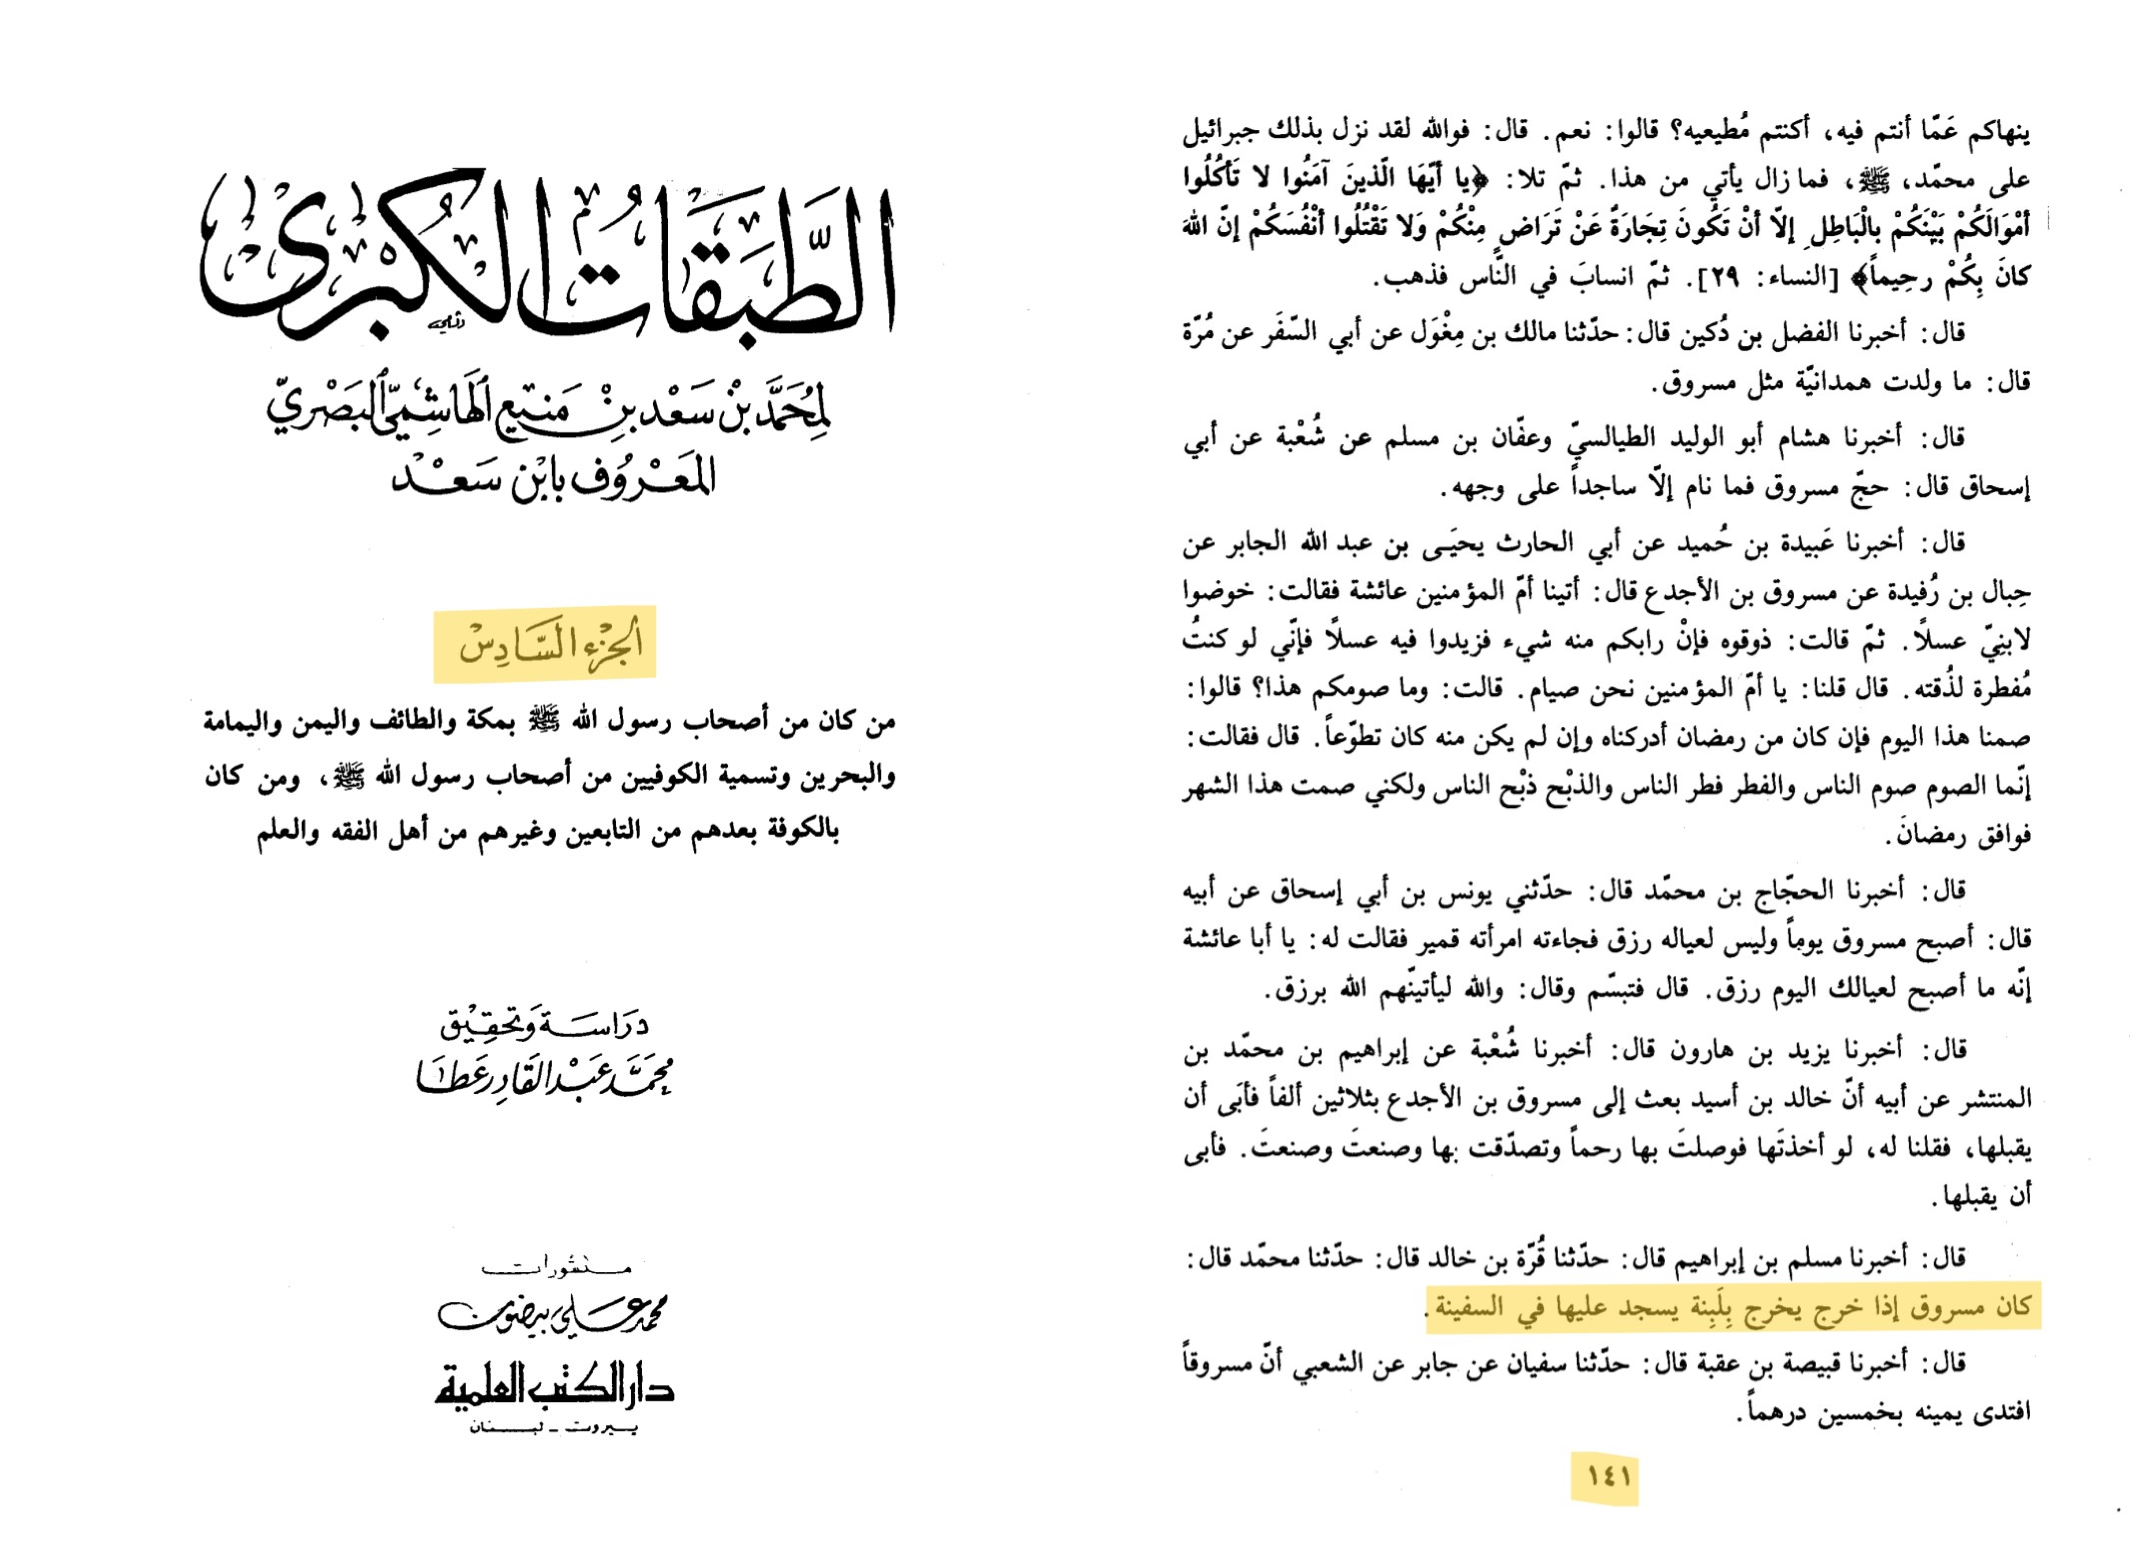 ينهاكم عَمّا أنتم فيه، أكنتم مُطيعيه؟ قالوا: نعم. قال: فوالله لقد نزل بذلك جبرائيل
على محمّد، ﷺ، فما زال يأتي من هذا. ثمّ تلا: ﴿يا أيّهَا الّذينَ آمَنُوا لا تَأكُلُوا
أمْوَالَكُمْ بَيْنَكُمْ بالْبَاطِلِ إلاّ أنْ تَكُونَ تِجَارَةً عَنْ تَرَاضٍ مِنْكُمْ وَلا تَقْتُلُوا أنْفُسَكُمْ إنّ اللهَ
كانَ بِكُمْ رحِيماً﴾ [النساء: ٢٩]. ثمّ انسابَ في النّاس فذهب.
قال: أخبرنا الفضل بن دُكين قال: حدّثنا مالك بن مِغْوَل عن أبي السّفَر عن مُرّة
قال: ما ولدت همدانيّة مثل مسروق.
قال: أخبرنا هشام أبو الوليد الطيالسيّ وعفّان بن مسلم عن شُعْبة عن أبي
إسحاق قال: حجّ مسروق فما نام إلّا ساجداً على وجهه.
قال: أخبرنا عَبيدة بن حُميد عن أبي الحارث يحيَى بن عبد الله الجابر عن
حِبال بن رُفيدة عن مسروق بن الأجدع قال: أتينا أمّ المؤمنين عائشة فقالت: خوضوا
لابنِيّ عسلاً. ثمّ قالت: ذوقوه فإنْ رابكم منه شيء فزيدوا فيه عسلاً فإنّي لو كنتُ
مُفطرة لذُقته. قال قلنا: يا أمّ المؤمنين نحن صيام. قالت: وما صومكم هذا؟ قالوا:
صمنا هذا اليوم فإن كان من رمضان أدركناه وإن لم يكن منه كان تطوّعاً. قال فقالت:
إنّما الصوم صوم الناس والفطر فطر الناس والذبْح ذبْح الناس ولكني صمت هذا الشهر
فوافق رمضانَ.
قال: أخبرنا الحجّاج بن محمّد قال: حدّثني يونس بن أبي إسحاق عن أبيه
قال: أصبح مسروق يوماً وليس لعياله رزق فجاءته امرأته قمير فقالت له: يا أبا عائشة
إنّه ما أصبح لعيالك اليوم رزق. قال فتبسّم وقال: والله ليأتينّهم الله برزق.
قال: أخبرنا يزيد بن هارون قال: أخبرنا شُعْبة عن إبراهيم بن محمّد بن
المنتشر عن أبيه أنّ خالد بن أسيد بعث إلى مسروق بن الأجدع بثلاثين ألفاً فأبَى أن
يقبلها، فقلنا له، لو أخذتَها فوصلتَ بها رحماً وتصدّقت بها وصنعتَ وصنعتَ. فأبى
أن يقبلها.
قال: أخبرنا مسلم بن إبراهيم قال: حدّثنا قُرّة بن خالد قال: حدّثنا محمّد قال:
كان مسروق إذا خرج يخرج بِلَبِنة يسجد عليها في السفينة.
قال: أخبرنا قبيصة بن عقبة قال: حدّثنا سفيان عن جابر عن الشعبي أنّ مسروقاً
افتدى يمينه بخمسين درهماً.
١٤١
الطَّبَقَاتُ الكُبْرَى
لِمُحَمَّد بْن سَعْد بنْ مَنيع الهَاشِميّ البَصْريّ
المَعْرُوف بابْن سَعْد
الجُزْءُ السَّادِسْ
من كان من أصحاب رسول الله ﷺ بمكة والطائف واليمن واليمامة
والبحرين وتسمية الكوفيين من أصحاب رسول الله ﷺ، ومن كان
بالكوفة بعدهم من التابعين وغيرهم من أهل الفقه والعلم
دَرَاسَة وَتحقِيْق
محمَّد عَبْد القَادِر عَطَا
منشورات
محمد علي بيضون
دار الكتب العلمية
بيروت - لبنان